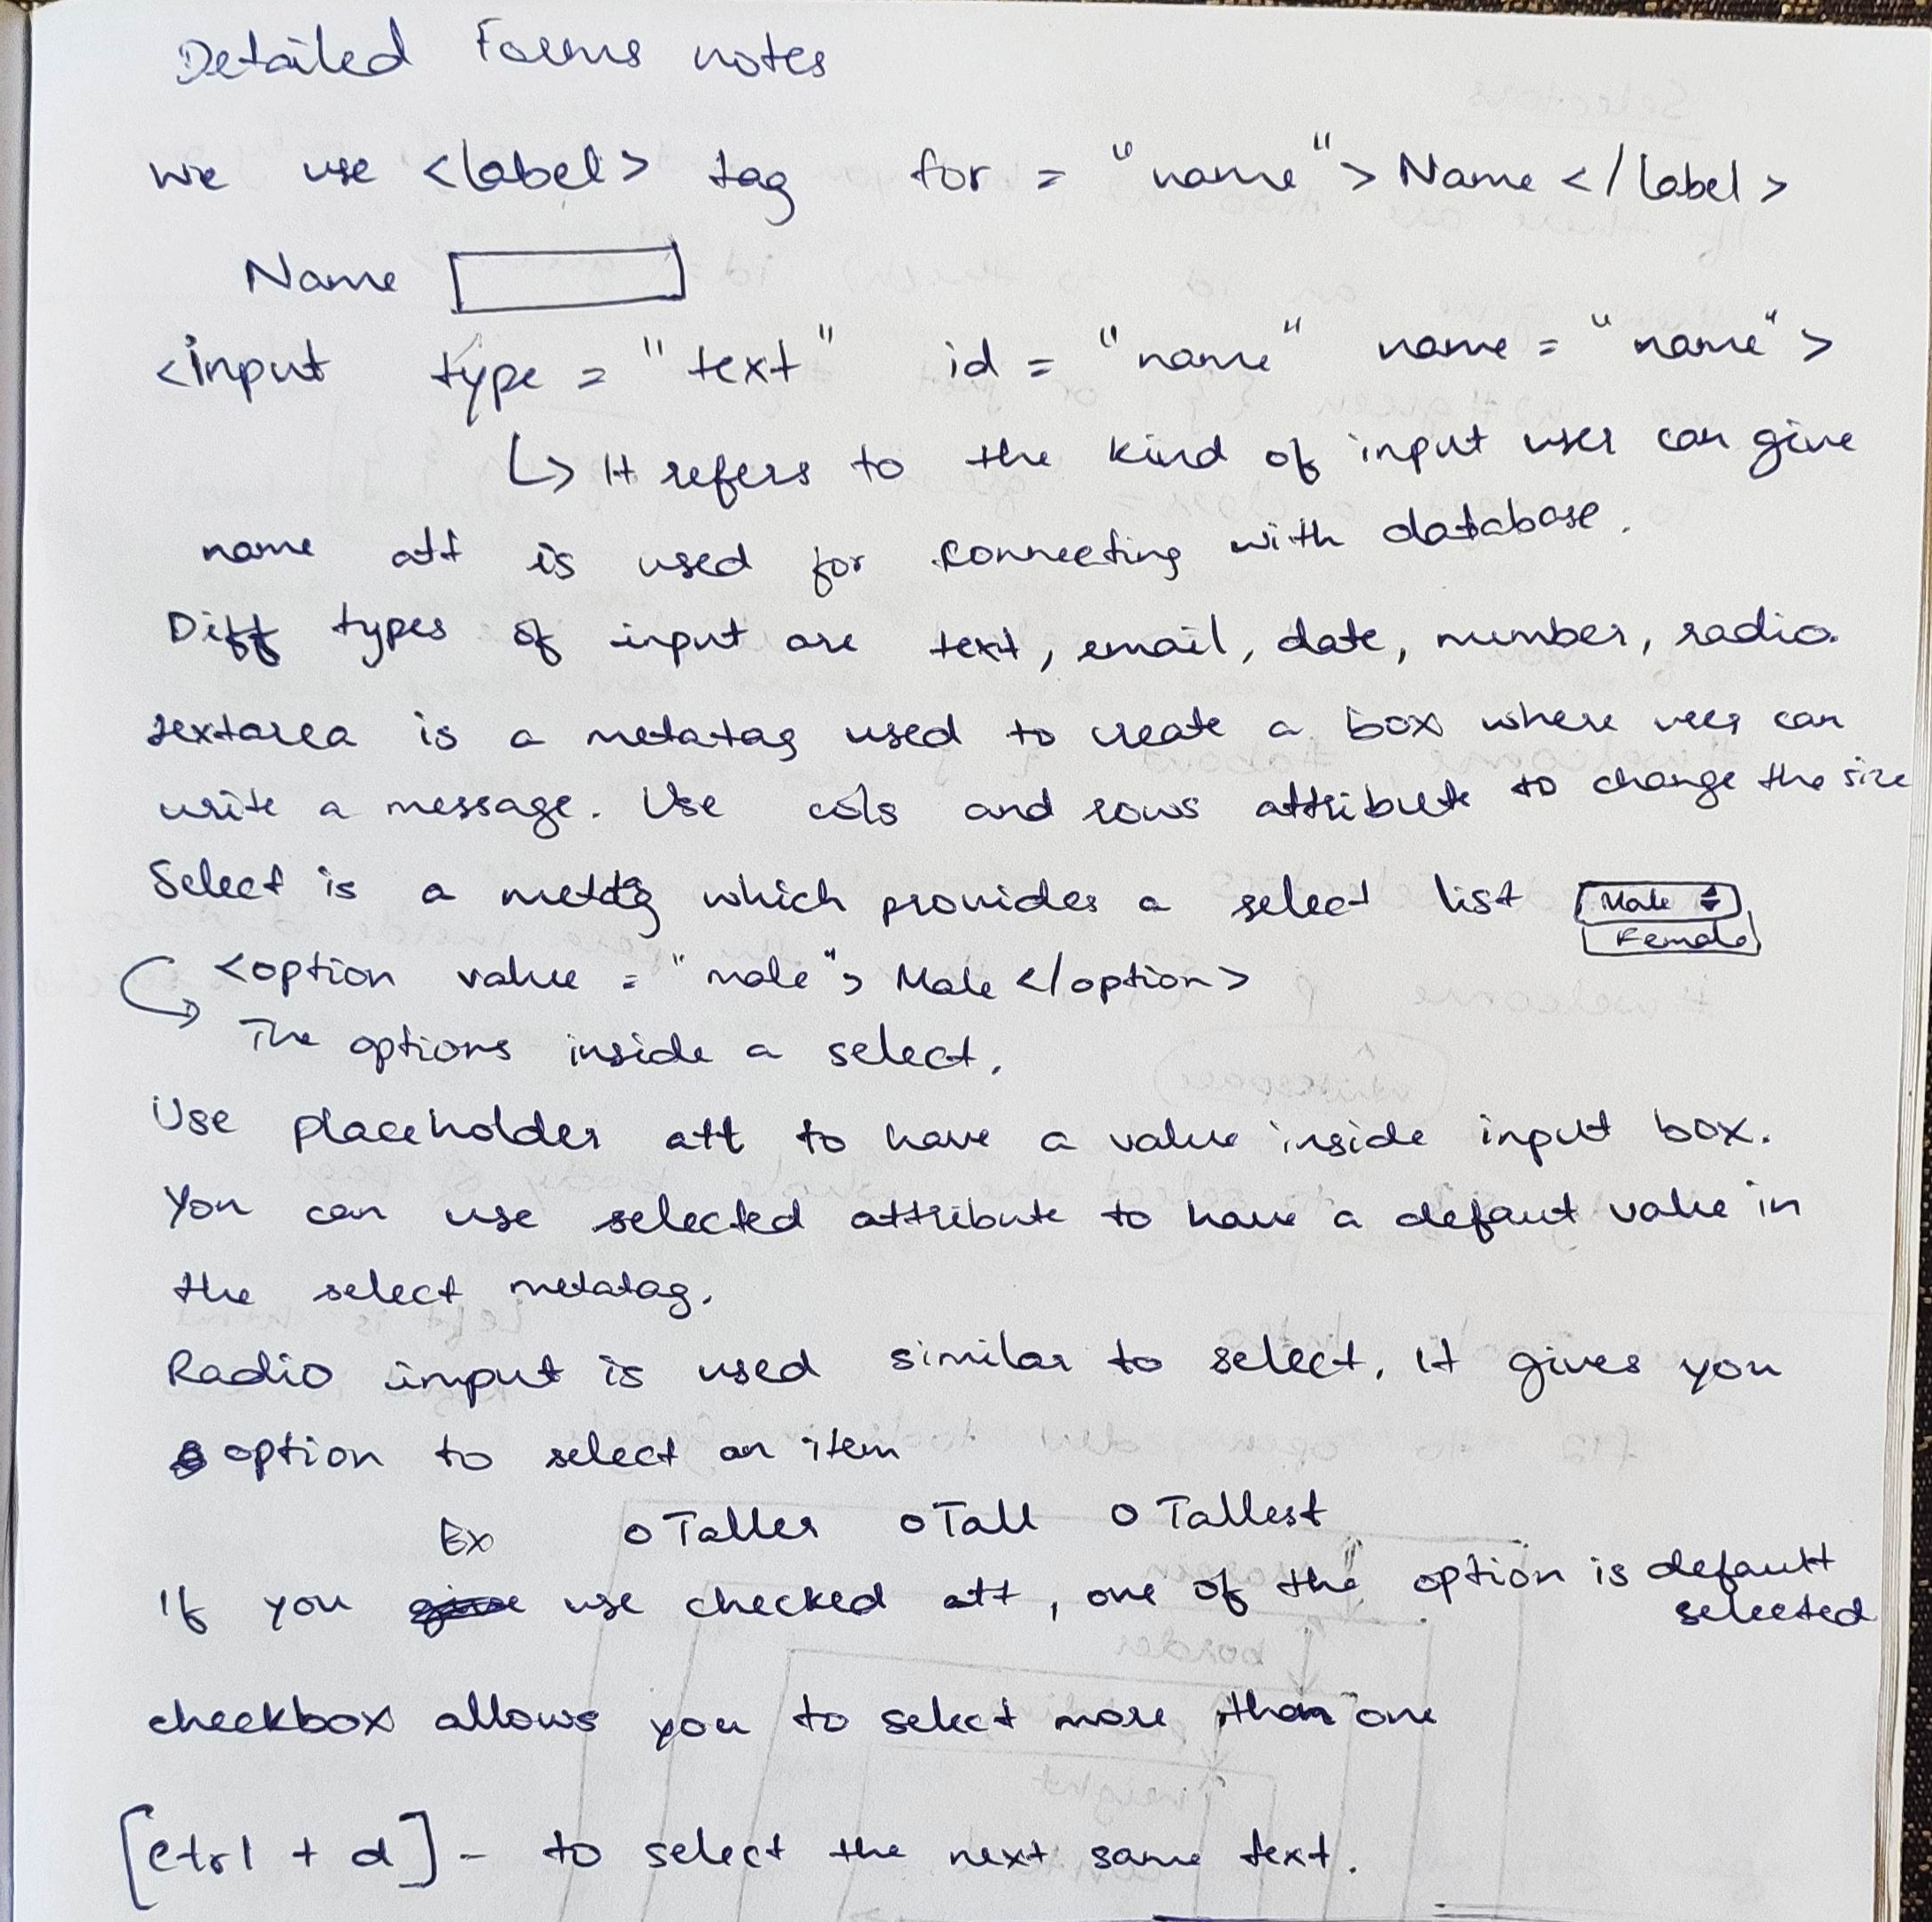 Detailed Forms notes
we use <label> tag for = "name"> Name </label>
Name
<input type = "text" id = "name" name = "name">
↳ It refers to the kind of input user can give
name att is used for connecting with database.
Diff types of input are text, email, date, number, radio.
textarea is a metatag used to create a box where user can
write a message. Use cols and rows attribute to change the size
Select is a metatg which provides a select list Male
Female
<option value = "male"> Male </option>
The options inside a select.
Use placeholder att to have a value inside input box.
You can use selected attribute to have a defaut value in
the select metatag.
Radio input is used similar to select. It gives you
option to select an item
Ex o Taller o Tall o Tallest
If you use checked att, one of the option is default
selected
checkbox allows you to select more than one
[ctrl + d] - to select the next same text.